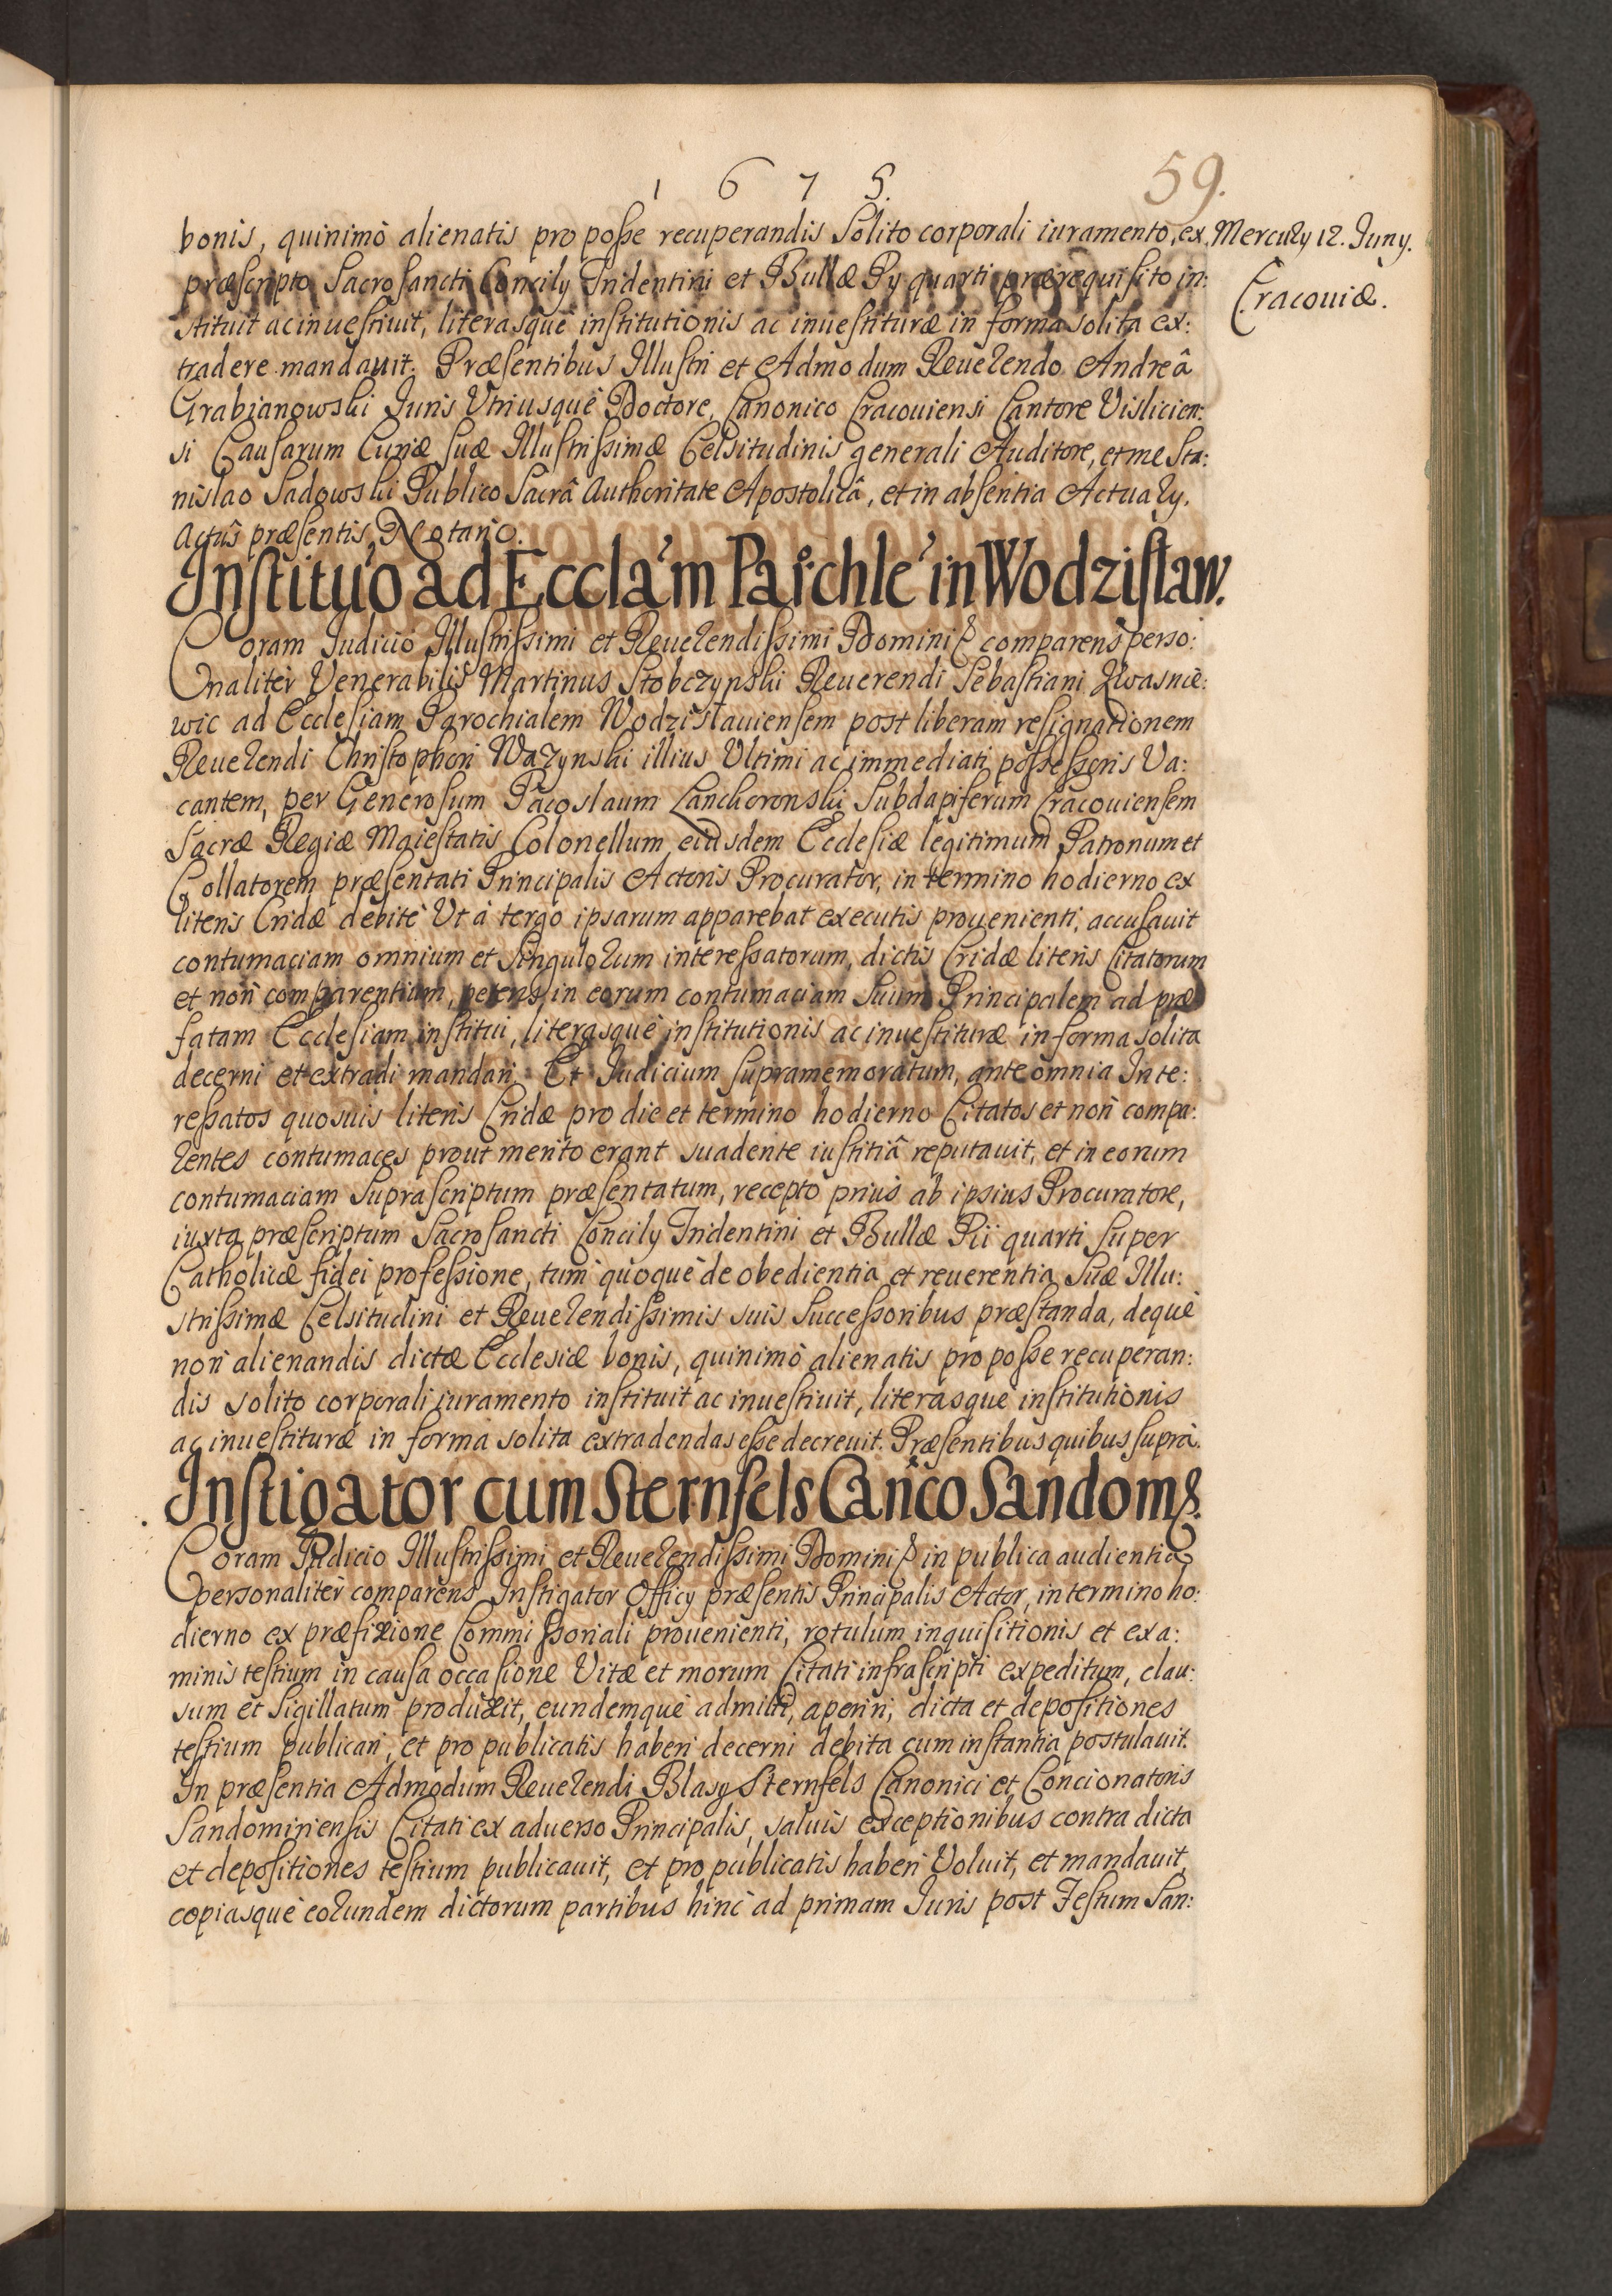 1 6 7 5.
59.
bonis, quinimò alienatis pro poße recuperandis Solito corporali iuramento, ex
Mercurÿ 12. Junÿ.
Cracouiæ.
præscripto Sacrosancti Concilÿ Tridentini et Bullæ Pÿ quarti prærequisito in:
stituit ac inuestiuit, literasquè institutionis ac inuestituræ in forma solita ex:
tradere mandauit. Præsentibus Illustri et Admodum Reuerendo Andreâ
Grabianowski Juris Vtriusquè Doctore, Canonico Cracouiensi Cantore Vislicien:
si Causarum Curiæ suæ Illustrißimæ Celsitudinis generali Auditore, et me Sta:
nislao Sadowski Publico Sacrâ Authoritate Apostolicâ, et in absentia Actuarÿ,
Actûs præsentis, Notario.
Institu'o ad Eccla'm Paro'chle' in Wodzislaw.
Coram Judicio Illustrißimi et Reuerendißimi Domini & comparens perso:
naliter Venerabilis Martinus Stobczynski Reuerendi Sebastiani Kwasnie:
wic ad Ecclesiam Parochialem Wodzislauiensem post liberam resignationem
Reuerendi Christophori Wazynski illius Vltimi ac immediati poßeßoris Va:
cantem, per Generosum Pacoslaum Lanckoronski Subdapiferum Cracouiensem
Sacræ Regiæ Maiestatis Colonellum eiusdem Ecclesiæ legitimum Patronum et
Collatorem præsentati Principalis Actoris Procurator, in termino hodierno ex
literis Cridæ debitè Vt à tergo ipsarum apparebat executis prouenienti, accusauit
contumaciam omnium et Singulorum intereßatorum, dictis Cridæ literis Citatorum
et non comparentium, petens in eorum contumaciam Suum Principalem ad præ
fatam Ecclesiam institui, literasquè institutionis ac inuestituræ in forma solita
decerni et extradi mandari. Et Judicium supramemoratum, ante omnia Inte:
reßatos quosuis literis Cridæ pro die et termino hodierno Citatos et non compa:
rentes contumaces prout merito erant suadente iustitiâ reputauit, et in eorum
contumaciam Suprascriptum præsentatum, recepto prius ab ipsius Procuratore,
iuxta præscriptum Sacrosancti Concilÿ Tridentini et Bullæ Pii quarti super
Catholicæ fidei profeßione, tum quoquè de obedientia et reuerentia Suæ Illu:
strißimæ Celsitudini et Reuerendißimis suis Succeßoribus præstanda, dequè
non alienandis dictæ Ecclesiæ bonis, quinimò alienatis pro poße recuperan:
dis solito corporali iuramento instituit ac inuestiuit, literasquè institutionis
ac inuestituræ in forma solita extradendas eße decreuit. Præsentibus quibus suprà.
Instigator cum Sternfels Can'co Sandom&.
Coram Judicio Illustrißimi et Reuerendißimi Domini & in publica audientia
personaliter comparens Instigator Officÿ præsentis Principalis Actor, in termino ho:
dierno ex præfixione Commißoriali prouenienti, rotulum inquisitionis et exa:
minis testium in causa occasione Vitæ et morum Citati infrascripti expeditum, clau:
sum et Sigillatum produxit, eundemquè admitti, aperiri, dicta et depositiones
testium publicari, et pro publicatis haberi decerni debita cum instantia postulauit.
In præsentia Admodum Reuerendi Blasÿ Sternfels Canonici et Concionatoris
Sandomiriensis Citati ex aduerso Principalis, saluis exceptionibus contra dicta
et depositiones testium publicauit, et pro publicatis haberi Voluit, et mandauit,
copiasquè eorundem dictorum partibus hinc ad primam Juris post Festum San: